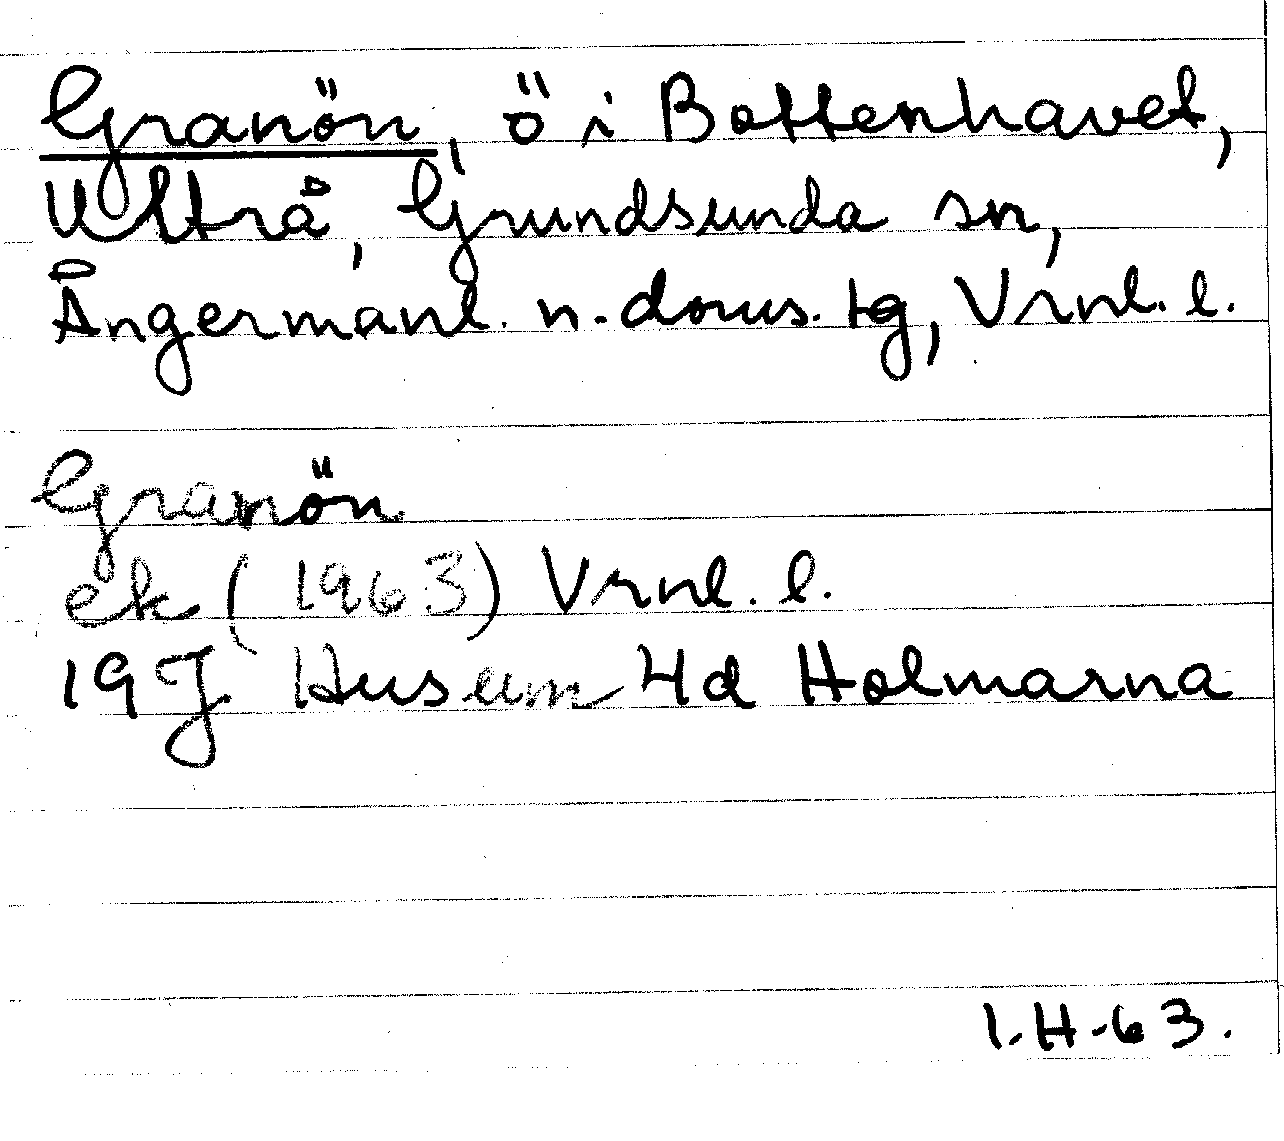 Granön, ö i Bottenhavet,
Ultrå, Grundsunda sn,
Ångermanl. n. doms. tg, Vrnl. l.
Granön
ek (1963) Vrnl. l.
19J Husum 4d Holmarna
I.H-63.